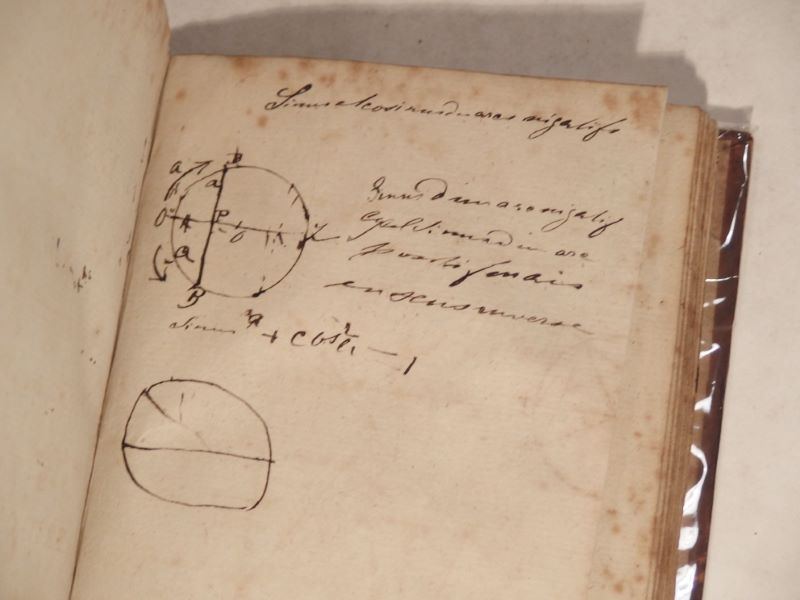 Sinus et cosinus du arcs nigatifs
a B
a
B
0 A P
o
a
B
Sinus d'un arc nigatif
egal Sinus d'un arc
positif mais
en sens inverse
Sinus²a + cos²a — 1